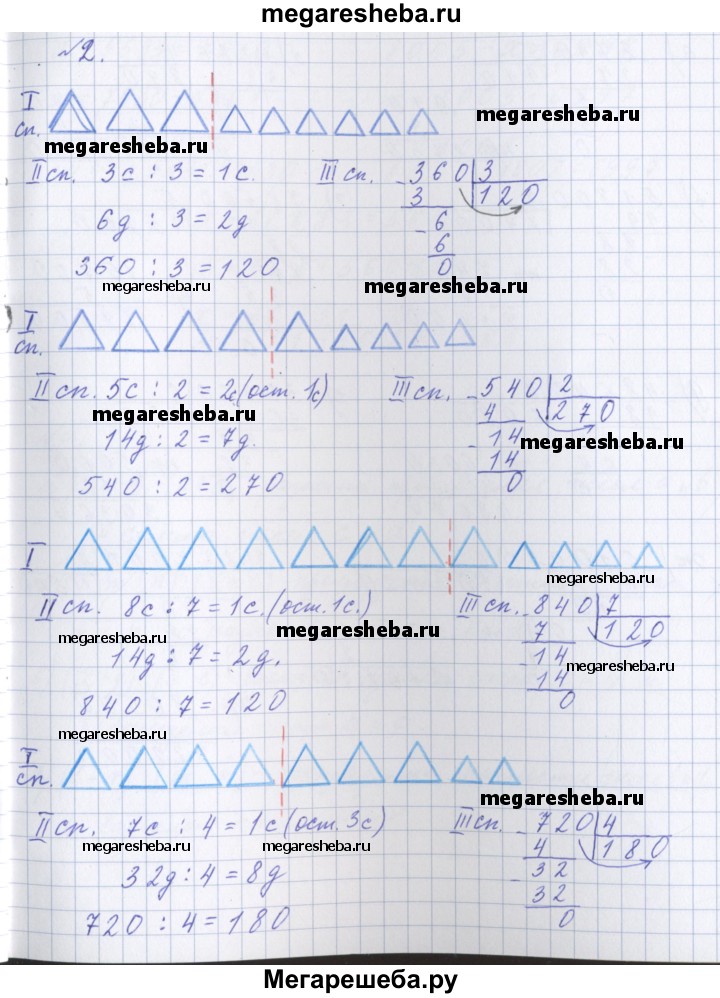 megaresheba.ru
№2.
I
сп.
megaresheba.ru
megaresheba.ru
II сп. 3с : 3 = 1с.
6д : 3 = 2д
360 : 3 = 120
III сп. 360 3
3 120
6
6
0
megaresheba.ru
megaresheba.ru
I
сп.
II сп. 5с : 2 = 2с (ост. 1с)
megaresheba.ru
14д : 2 = 7д.
540 : 2 = 270
III сп. 540 2
4 270
14
14
0
megaresheba.ru
I
megaresheba.ru
II сп. 8с : 7 = 1с. (ост. 1с.)
megaresheba.ru
megaresheba.ru
14д : 7 = 2д.
840 : 7 = 120
III сп. 840 7
7 120
14
14
0
megaresheba.ru
megaresheba.ru
I
сп.
megaresheba.ru
II сп. 7с : 4 = 1с (ост. 3с)
megaresheba.ru
megaresheba.ru
32д : 4 = 8д
720 : 4 = 180
III сп. 720 4
4 180
32
32
0
megaresheba.ru
Мегарешеба.ру